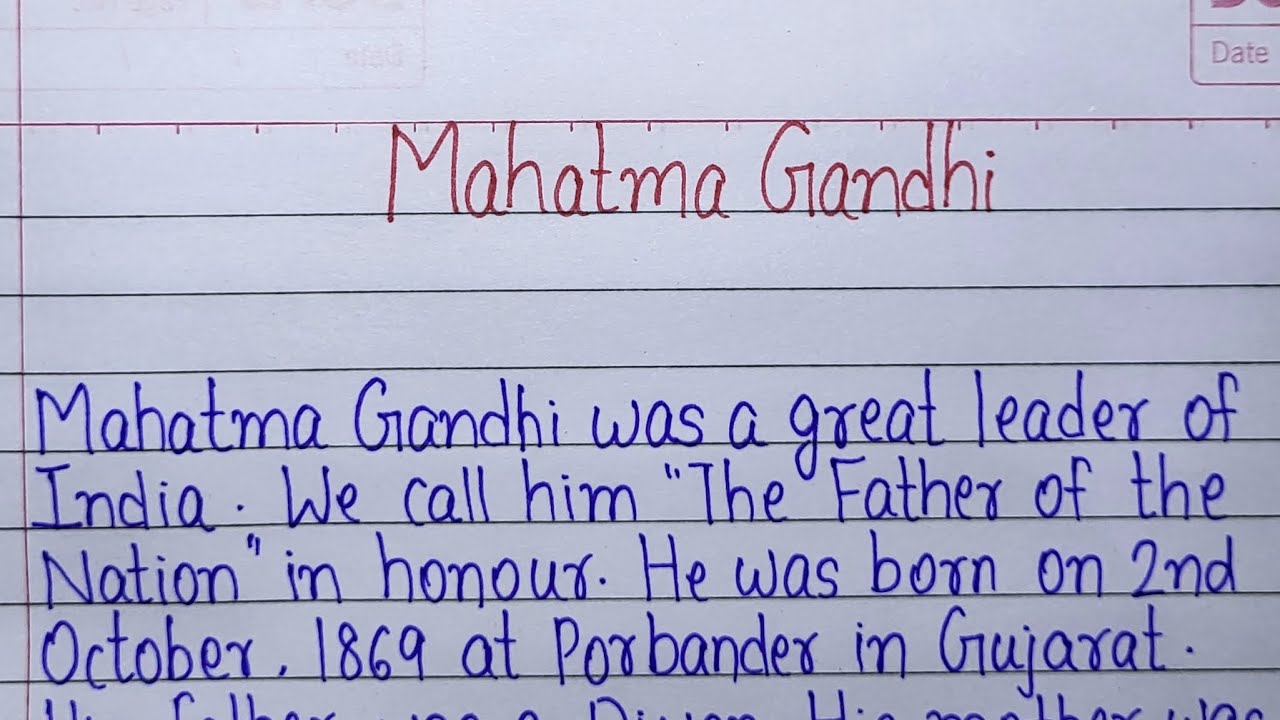 Date
Mahatma Gandhi
Mahatma Gandhi was a great leader of
India. We call him "The Father of the
Nation" in honour. He was born on 2nd
October, 1869 at Porbander in Gujarat.
father was a Diwan. His mother was